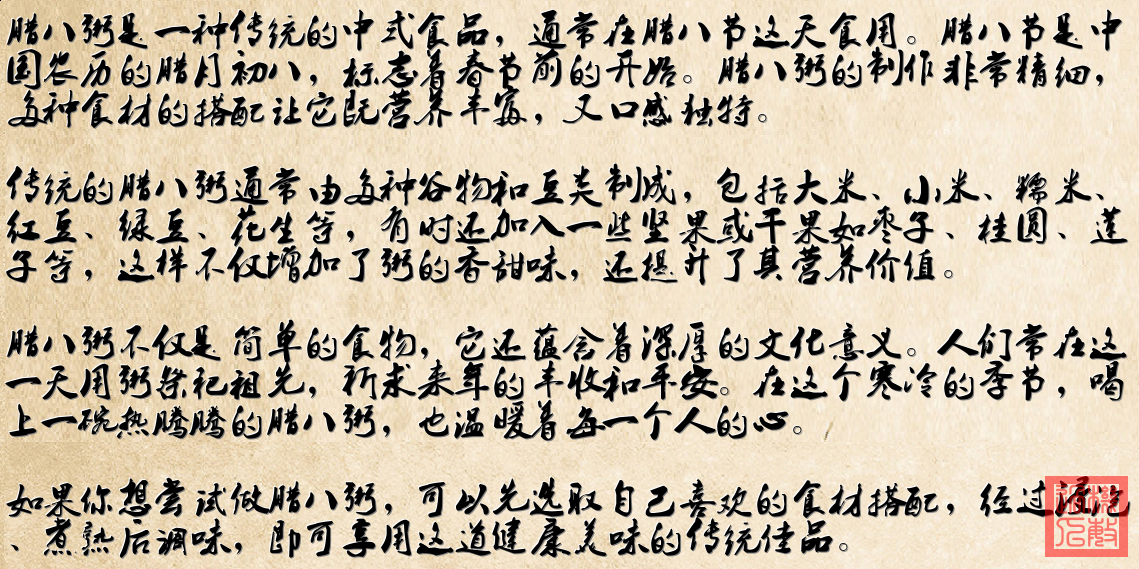 腊八粥是一种传统的中式食品，通常在腊八节这天食用。腊八节是中
国农历的腊月初八，标志着春节前的开始。腊八粥的制作非常精细，
多种食材的搭配让它既营养丰富，又口感独特。
传统的腊八粥通常由多种谷物和豆类制成，包括大米、小米、糯米、
红豆、绿豆、花生等，有时还加入一些坚果或干果如枣子、桂圆、莲
子等，这样不仅增加了粥的香甜味，还提升了其营养价值。
腊八粥不仅是简单的食物，它还蕴含着深厚的文化意义。人们常在这
一天用粥祭祀祖先，祈求来年的丰收和平安。在这个寒冷的季节，喝
上一碗热腾腾的腊八粥，也温暖着每一个人的心。
如果你想尝试做腊八粥，可以先选取自己喜欢的食材搭配，经过浸泡
、煮熟后调味，即可享用这道健康美味的传统佳品。